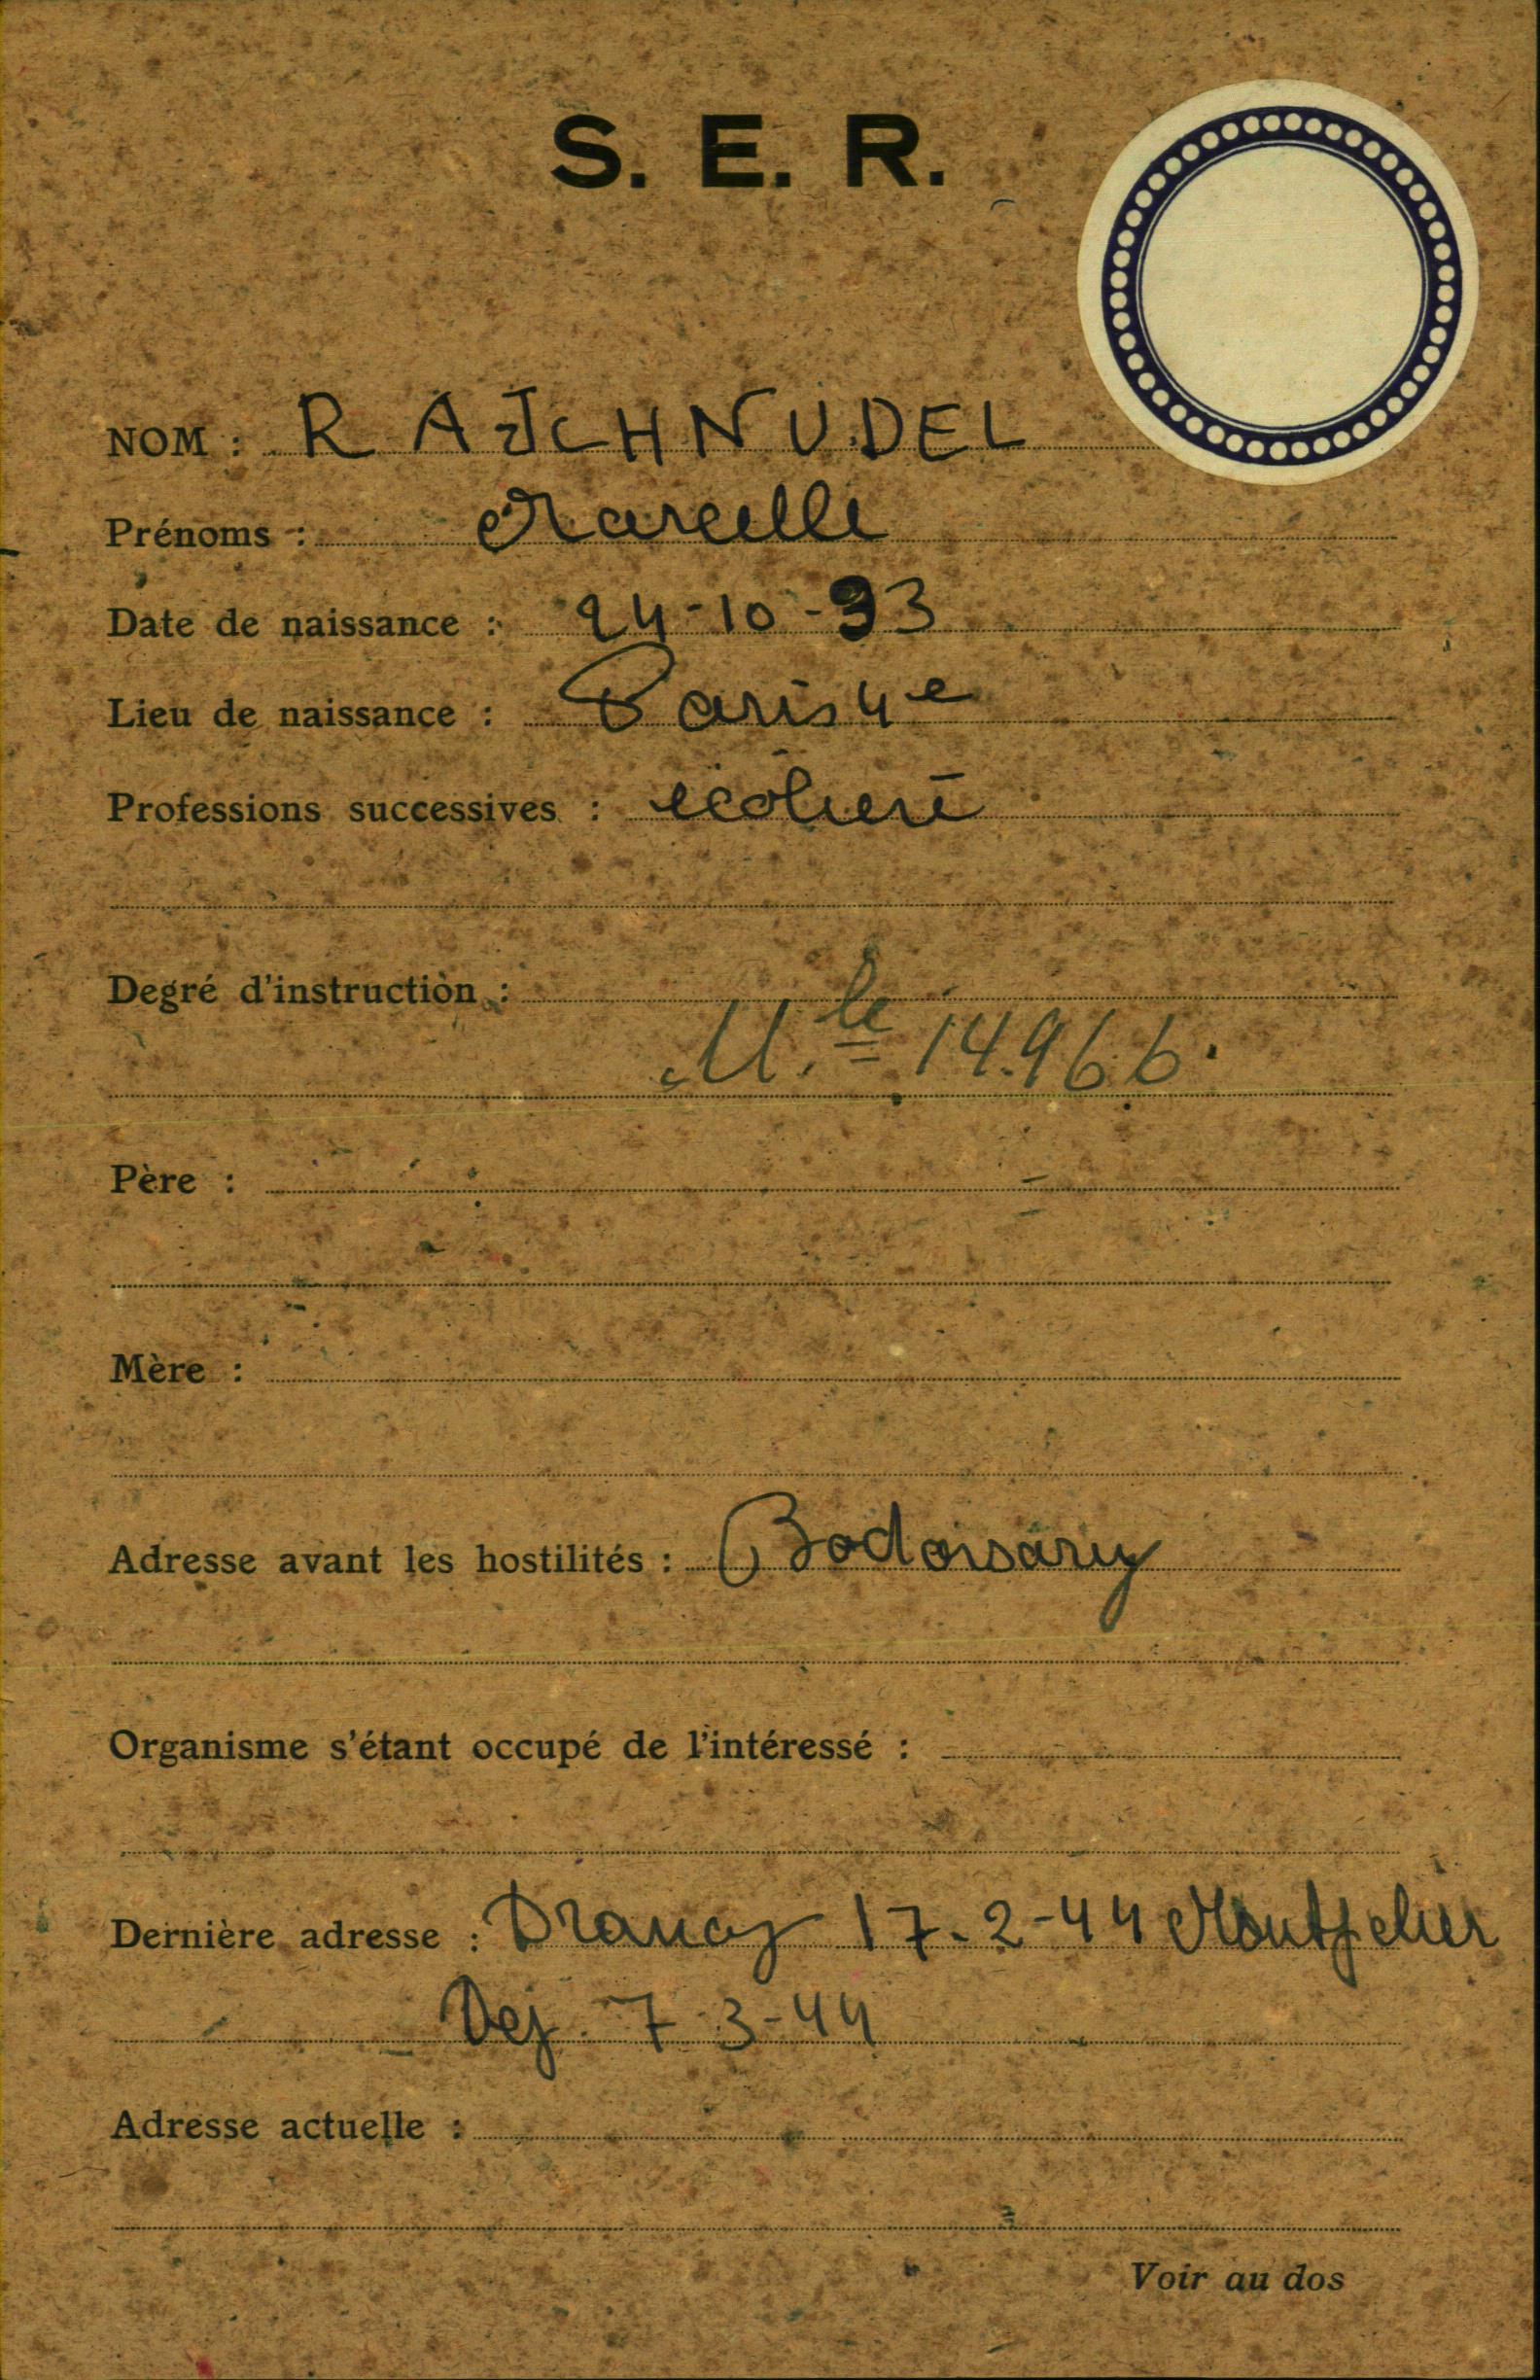 S. E. R.
NOM : RAJCHNUDEL
Prénoms : Marcelle
Date de naissance : 24-10-33
Lieu de naissance : Paris 4e
Professions successives : écolière
Degré d'instruction :
M.le 14.966.
Père :
Mère :
Adresse avant les hostilités :
Organisme s'étant occupé de l'intéressé :
Dernière adresse : Drancy 17-2-44 Montpelier
Dep. 7-3-44
Adresse actuelle :
Voir au dos